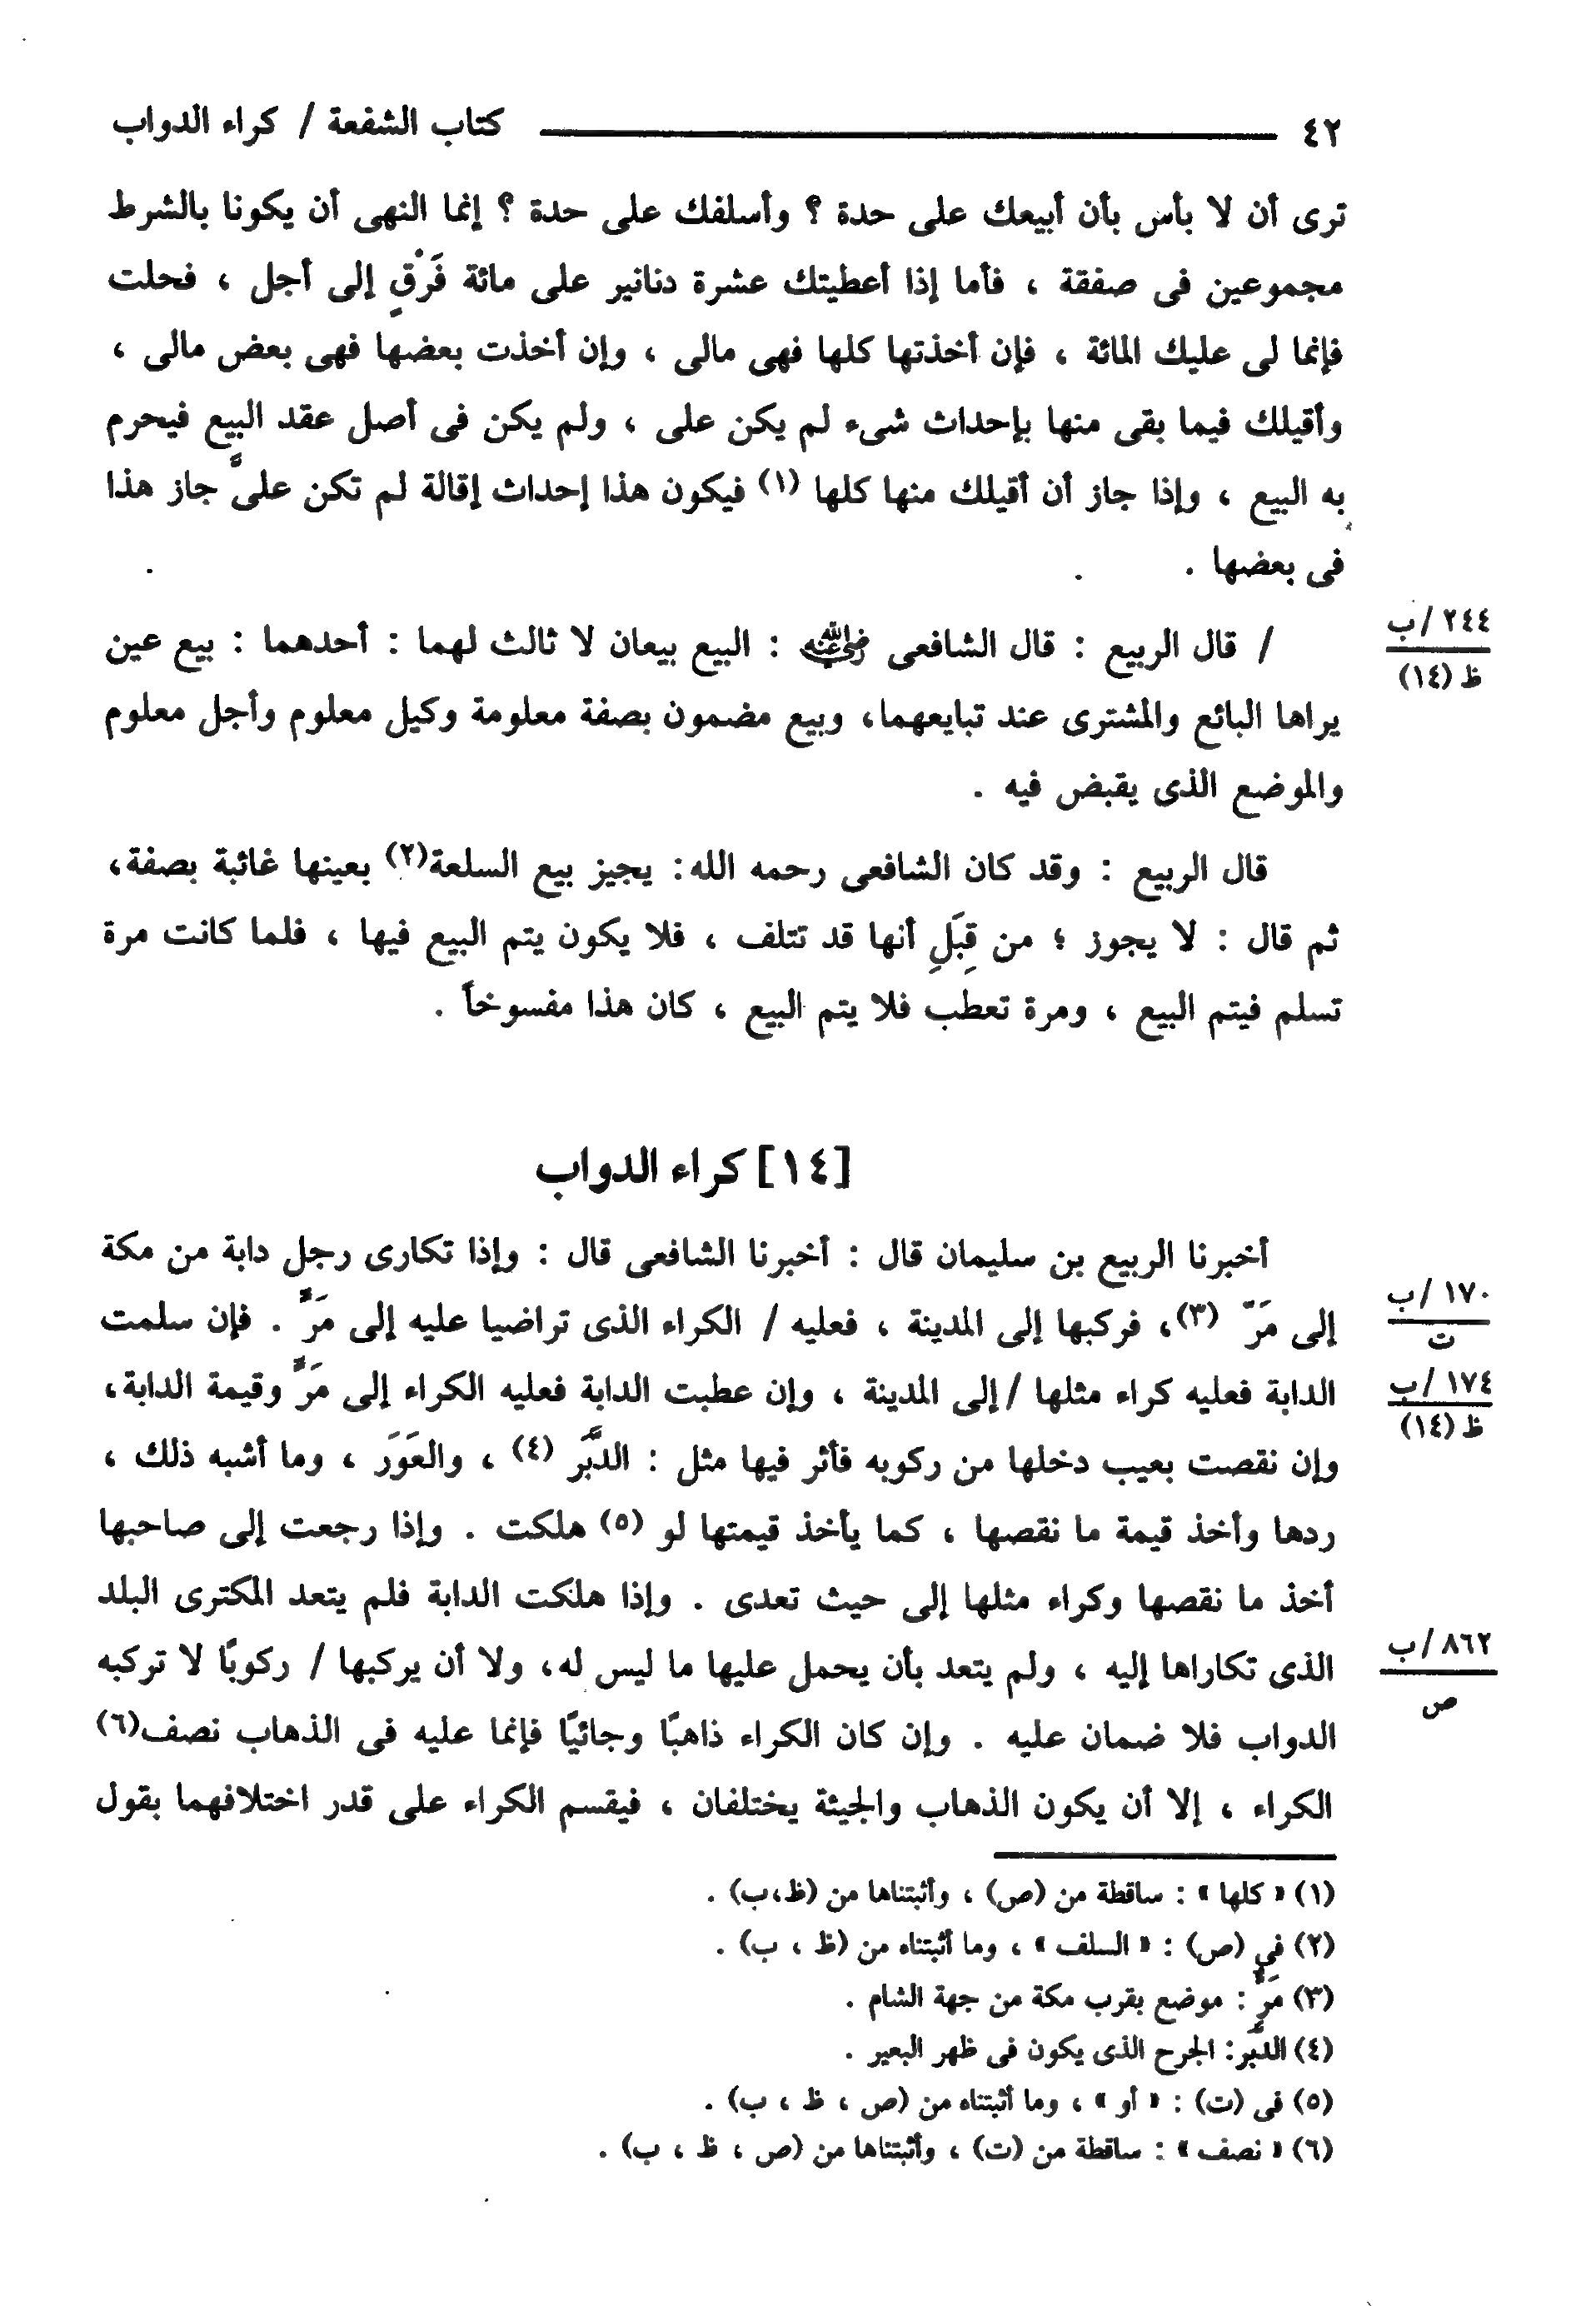 ٤٢ كتاب الشفعة / كراء الدواب
ترى أن لا بأس بأن أبيعك على حدة ؟ وأسلفك على حدة ؟ إنما النهى أن يكونا بالشرط
مجموعين فى صفقة ، فأما إذا أعطيتك عشرة دنانير على مائة فَرْقٍ إلى أجل ، فحلت
فإنما لى عليك المائة ، فإن أخذتها كلها فهى مالى ، وإن أخذت بعضها فهى بعض مالى ،
وأقيلك فيما بقى منها بإحداث شىء لم يكن على ، ولم يكن فى أصل عقد البيع فيحرم
به البيع ، وإذا جاز أن أقيلك منها كلها (١) فيكون هذا إحداث إقالة لم تكن علىَّ جاز هذا
فى بعضها .
٢٤٤/ب
ظ (١٤)
/ قال الربيع : قال الشافعى رضي الله عنه : البيع بيعان لا ثالث لهما : أحدهما : بيع عين
يراها البائع والمشترى عند تبايعهما، وبيع مضمون بصفة معلومة وكيل معلوم وأجل معلوم
والموضع الذى يقبض فيه .
قال الربيع : وقد كان الشافعى رحمه الله: يجيز بيع السلعة(٢) بعينها غائبة بصفة،
ثم قال : لا يجوز ؛ من قِبَلِ أنها قد تتلف ، فلا يكون يتم البيع فيها ، فلما كانت مرة
تسلم فيتم البيع ، ومرة تعطب فلا يتم البيع ، كان هذا مفسوخاً .
[١٤] كراء الدواب
أخبرنا الربيع بن سليمان قال : أخبرنا الشافعى قال : وإذا تكارى رجل دابة من مكة
١٧٠/ب
ت
إلى مَرّ (٣)، فركبها إلى المدينة ، فعليه / الكراء الذى تراضيا عليه إلى مَرٍّ . فإن سلمت
١٧٤/ب
ظ (١٤)
الدابة فعليه كراء مثلها /إلى المدينة ، وإن عطبت الدابة فعليه الكراء إلى مَرٍّ وقيمة الدابة،
وإن نقصت بعيب دخلها من ركوبه فأثر فيها مثل : الدَّبَر (٤) ، والعَوَر ، وما أشبه ذلك ،
ردها وأخذ قيمة ما نقصها ، كما يأخذ قيمتها لو (٥) هلكت . وإذا رجعت إلى صاحبها
أخذ ما نقصها وكراء مثلها إلى حيث تعدى . وإذا هلكت الدابة فلم يتعد المكترى البلد
٨٦٢/ب
ص
الذى تكاراها إليه ، ولم يتعد بأن يحمل عليها ما ليس له، ولا أن يركبها / ركوبًا لا تركبه
الدواب فلا ضمان عليه . وإن كان الكراء ذاهبًا وجائيًا فإنما عليه فى الذهاب نصف(٦)
الكراء ، إلا أن يكون الذهاب والجيئة يختلفان ، فيقسم الكراء على قدر اختلافهما بقول
(١) « كلها » : ساقطة من (ص) ، وأثبتناها من (ظ،ب) .
(٢) في (ص) : « السلف » ، وما أثبتناه من (ظ ، ب) .
(٣) مَرٍّ : موضع بقرب مكة من جهة الشام .
(٤) الدَّبَر: الجرح الذى يكون فى ظهر البعير .
(٥) فى (ت) : « أو » ، وما أثبتناه من (ص ، ظ ، ب) .
(٦) « نصف » : ساقطة من (ت) ، وأثبتناها من (ص ، ظ ، ب) .